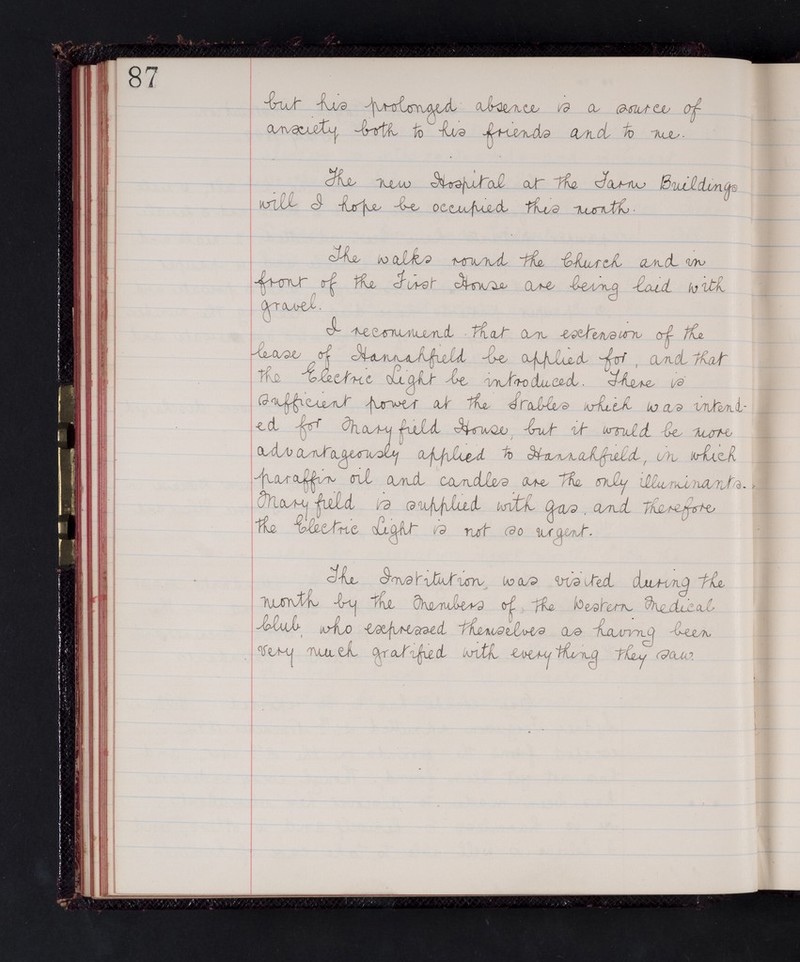 87
but his prolonged absence is a source of
anxiety both to his friends and to me.
The new Hospital at the Farm Buildings
will I hope be occupied this month.
The walks round the Church and in
front of the First House are being laid with
gravel.
I recommend that an extension of the
lease of Hannahfield be applied for, and that
the Electric Light be introduced. There is
sufficient power at the Stables which was intend-
ed for Maryfield House, but it would be more
advantageously applied to Hannahfield, in which
paraffin oil and candles are the only illuminants.
Maryfield is supplied with gas, and therefore
the Electric Light is not so urgent.
The Institution, was visited during the
month by the Members of the Western Medical
Club, who expressed themselves as having been
very much gratified with everything they saw.